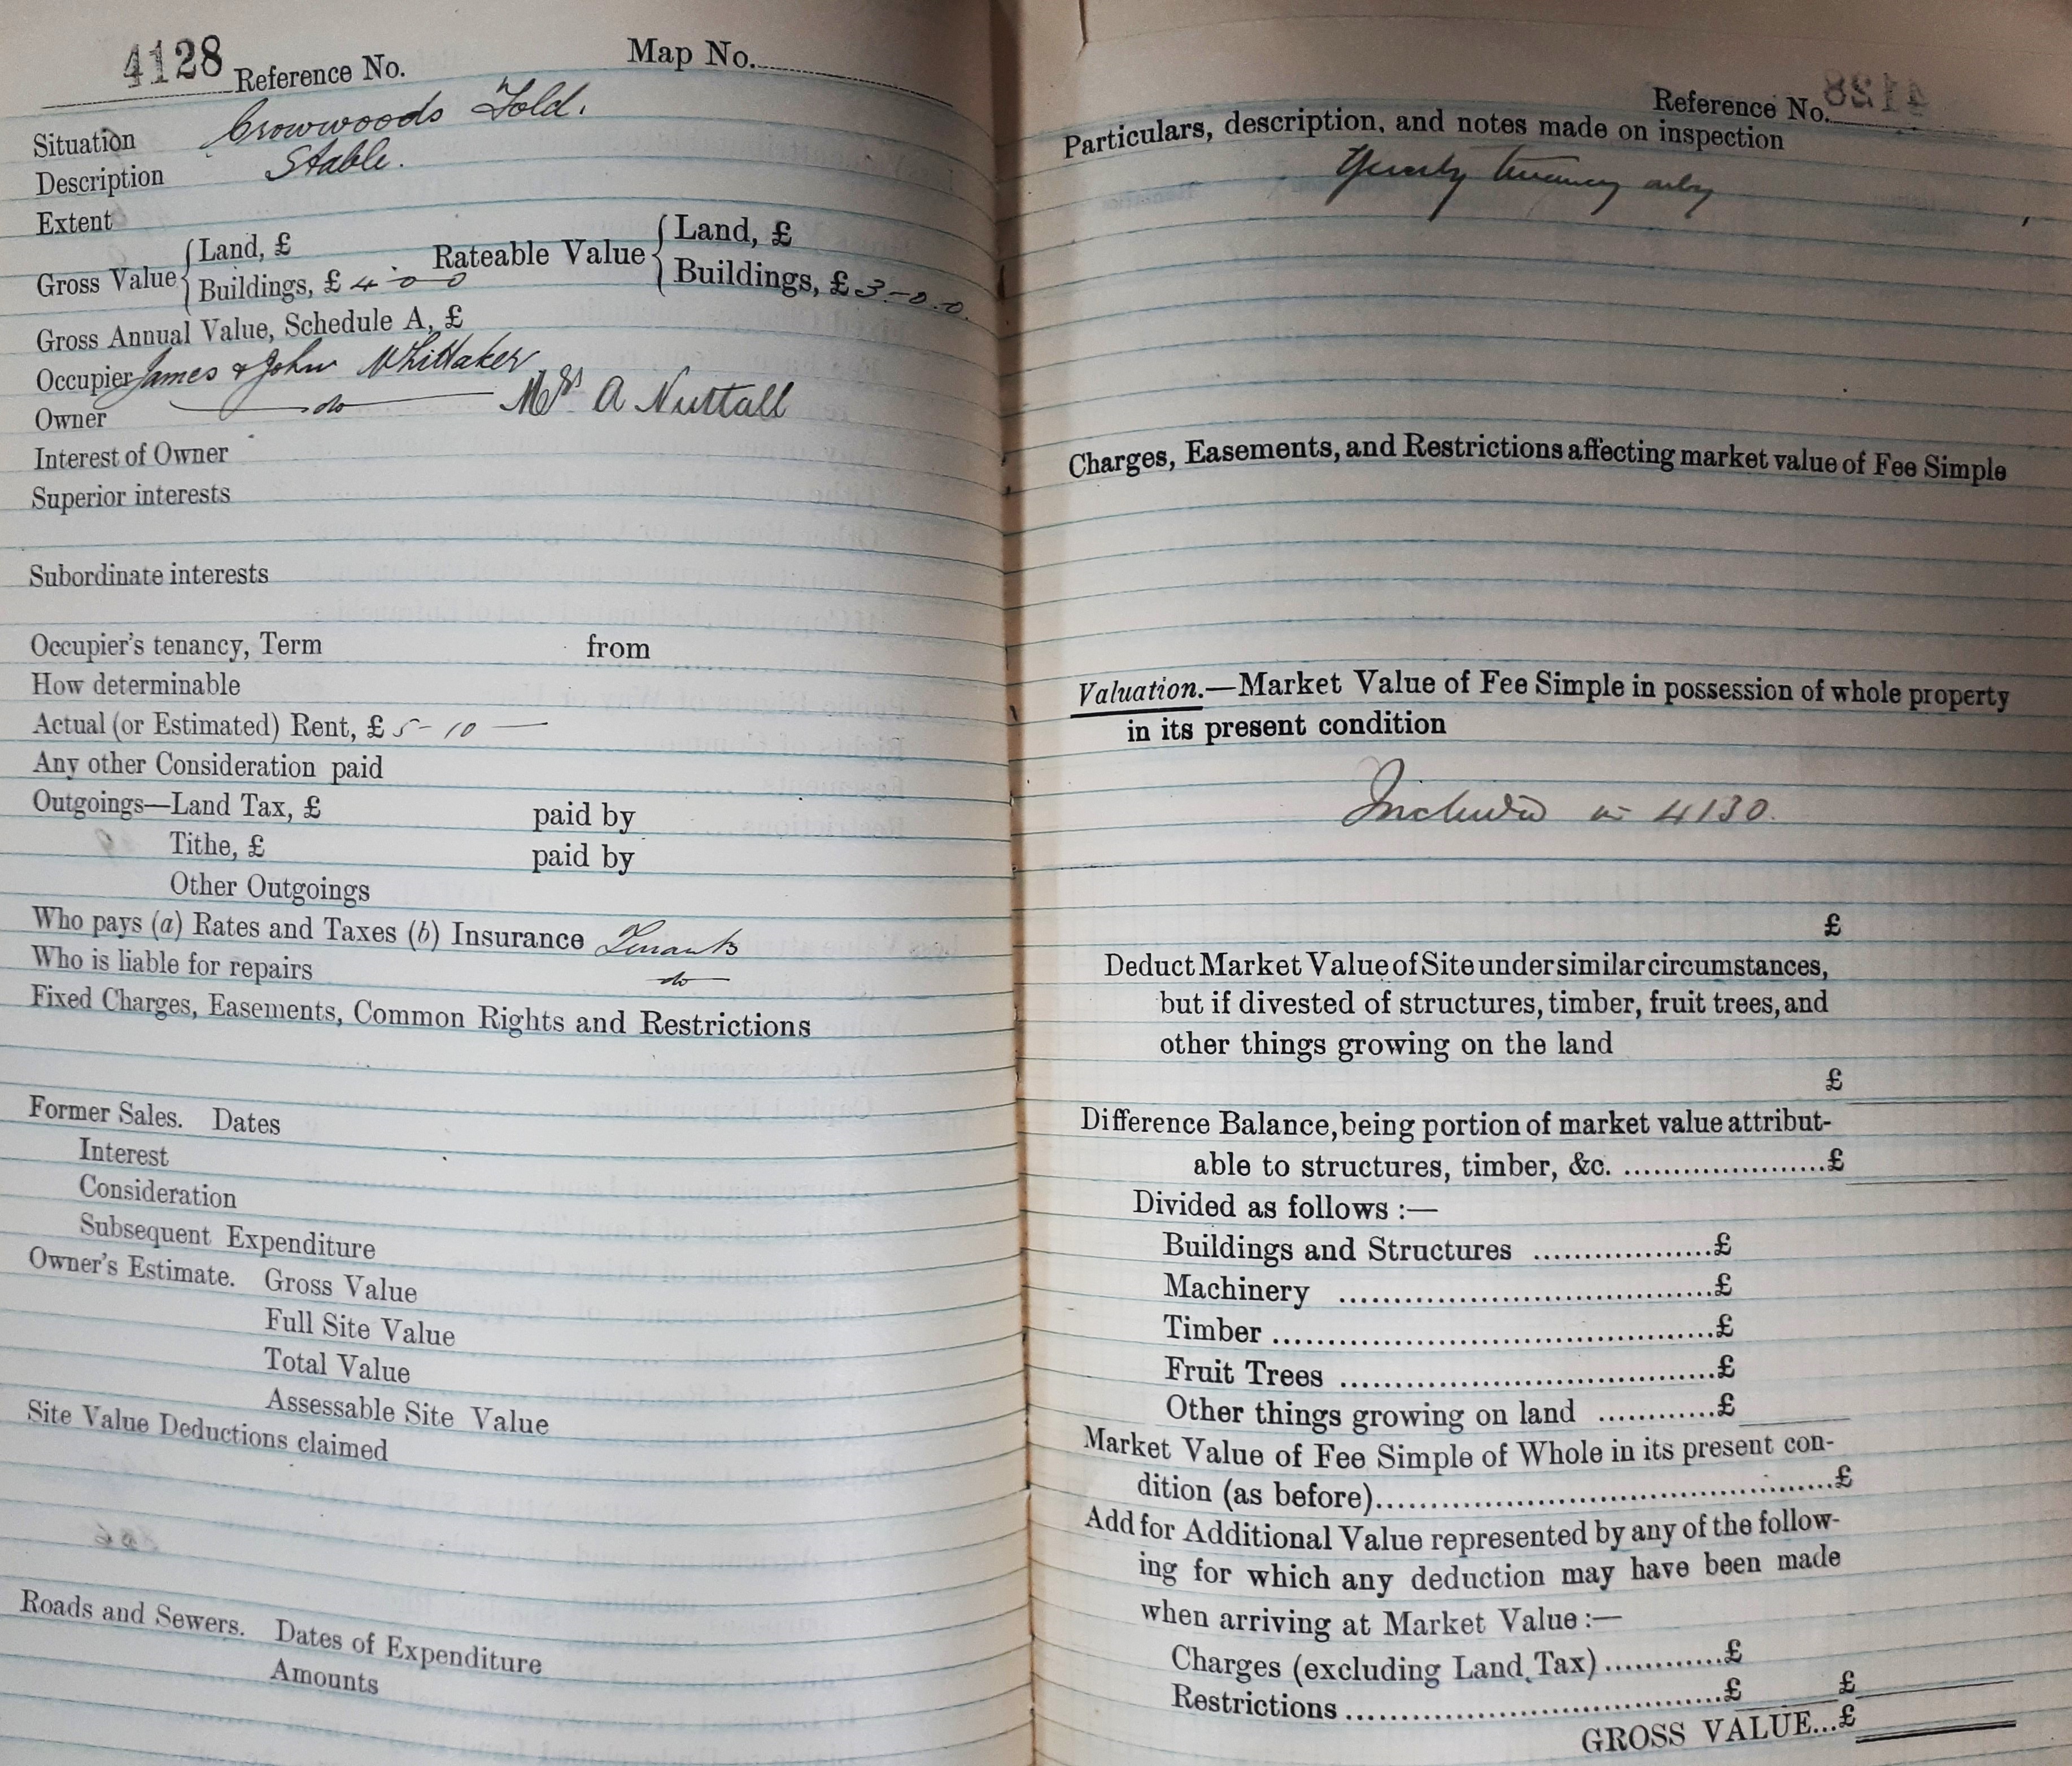 4128 Reference No. Map No.
Situation Crowwoods Fold.
Description Stable.
Extent
Gross Value { Land, £ Rateable Value { Land, £
Buildings, £ 4-0-0 Buildings, £ 3-0.0.
Gross Annual Value, Schedule A, £
Occupier James & John Whittaker
Owner do Mrs A Nuttall
Interest of Owner
Superior interests
Subordinate interests
Occupier's tenancy, Term from
How determinable
Actual (or Estimated) Rent, £ 5-10 —
Any other Consideration paid
Outgoings—Land Tax, £ paid by
Tithe, £ paid by
Other Outgoings
Who pays (a) Rates and Taxes (b) Insurance Tenants
Who is liable for repairs do
Fixed Charges, Easements, Common Rights and Restrictions
Former Sales. Dates
Interest
Consideration
Subsequent Expenditure
Owner's Estimate. Gross Value
Full Site Value
Total Value
Assessable Site Value
Site Value Deductions claimed
Roads and Sewers. Dates of Expenditure
Amounts
Reference No. 4128
Particulars, description, and notes made on inspection
Yearly tenancy only
Charges, Easements, and Restrictions affecting market value of Fee Simple
Valuation.—Market Value of Fee Simple in possession of whole property
in its present condition
Included in 4130.
£
Deduct Market Value of Site under similar circumstances,
but if divested of structures, timber, fruit trees, and
other things growing on the land
£
Difference Balance, being portion of market value attribut-
able to structures, timber, &c. ......................£
Divided as follows :—
Buildings and Structures ..................£
Machinery ......................................£
Timber ............................................£
Fruit Trees ......................................£
Other things growing on land ............£
Market Value of Fee Simple of Whole in its present con-
dition (as before)..............................................£
Add for Additional Value represented by any of the follow-
ing for which any deduction may have been made
when arriving at Market Value :—
Charges (excluding Land Tax) ............£
Restrictions ......................................£ £
GROSS VALUE...£